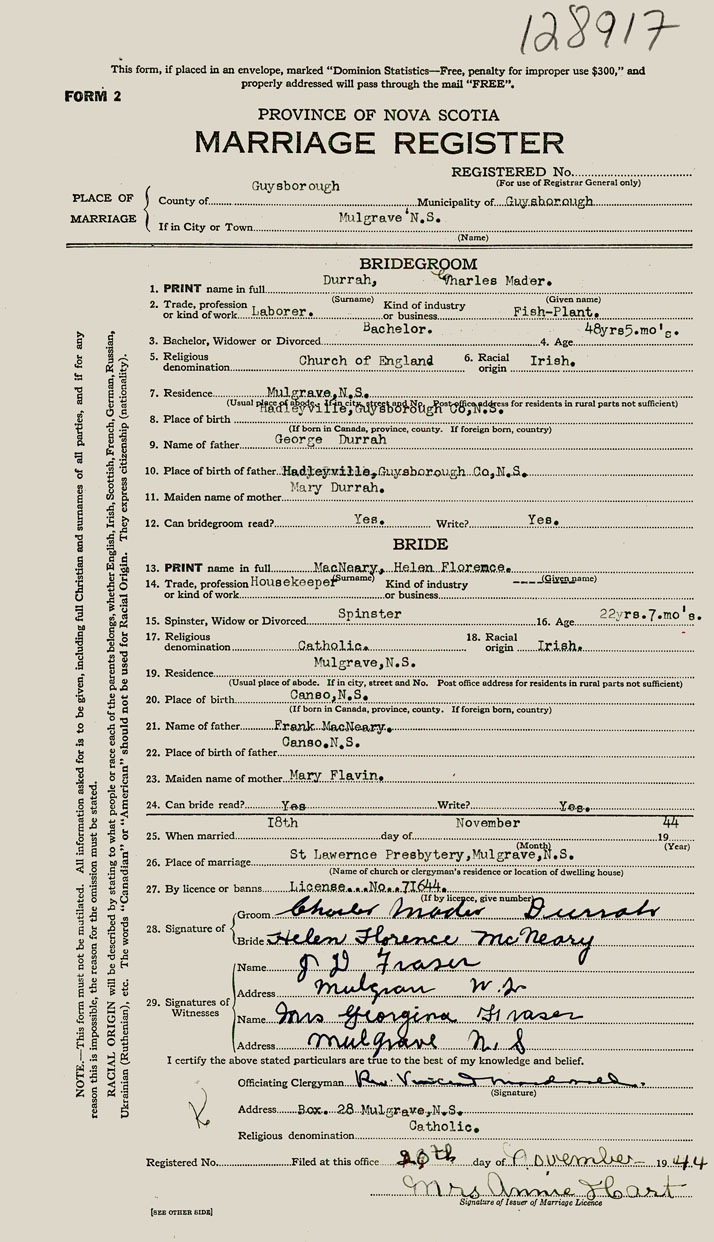 128917
This form, if placed in an envelope, marked "Dominion Statistics—Free, penalty for improper use $300," and
properly addressed will pass through the mail "FREE".
FORM 2
PROVINCE OF NOVA SCOTIA
MARRIAGE REGISTER
REGISTERED No.
(For use of Registrar General only)
PLACE OF MARRIAGE
County of Guysborough Municipality of Guysborough
If in City or Town Mulgrave N.S.
(Name)
BRIDEGROOM
1. PRINT name in full Durrah, Charles Mader.
(Surname) (Given name)
2. Trade, profession or kind of work Laborer. Kind of industry or business Fish-Plant.
3. Bachelor, Widower or Divorced Bachelor. 4. Age 48yrs5.mo's.
5. Religious denomination Church of England 6. Racial origin Irish.
7. Residence Mulgrave,N.S.
(Usual place of abode. If in city, street and No. Post office address for residents in rural parts not sufficient)
8. Place of birth Hadleyville,Guysborough Co,N.S.
(If born in Canada, province, county. If foreign born, country)
9. Name of father George Durrah
10. Place of birth of father Hadleyville,Guysborough Co,N.S.
11. Maiden name of mother Mary Durrah.
12. Can bridegroom read? Yes. Write? Yes.
BRIDE
13. PRINT name in full MacNeary, Helen Florence.
(Surname) (Given name)
14. Trade, profession or kind of work Housekeeper Kind of industry or business ----
15. Spinster, Widow or Divorced Spinster 16. Age 22yrs.7.mo's.
17. Religious denomination Catholic. 18. Racial origin Irish.
19. Residence Mulgrave,N.S.
(Usual place of abode. If in city, street and No. Post office address for residents in rural parts not sufficient)
20. Place of birth Canso,N.S.
(If born in Canada, province, county. If foreign born, country)
21. Name of father Frank MacNeary.
22. Place of birth of father Canso.N.S.
23. Maiden name of mother Mary Flavin.
24. Can bride read? Yes Write? Yes.
25. When married 18th day of November 1944
(Month) (Year)
26. Place of marriage St Lawernce Presbytery,Mulgrave,N.S.
(Name of church or clergyman's residence or location of dwelling house)
27. By licence or banns License...No..71644.
(If by licence, give number)
28. Signature of
Groom Charles Mader Durrah
Bride Helen Florence McNeary
29. Signatures of Witnesses
Name J D Fraser
Address Mulgrave N.S
Name Mrs Georgina Fraser
Address Mulgrave N. S
I certify the above stated particulars are true to the best of my knowledge and belief.
Officiating Clergyman Rev. Vincent
(Signature)
Address Box. 28 Mulgrave,N.S.
Religious denomination Catholic.
Registered No. Filed at this office day of November 1944
Mrs Annie Hart
Signature of Issuer of Marriage Licence
[SEE OTHER SIDE]
NOTE.—This form must not be mutilated. All information asked for is to be given, including full Christian and surnames of all parties, and if for any
reason this is impossible, the reason for the omission must be stated.
RACIAL ORIGIN will be described by stating to what people or race each of the parents belongs, whether English, Irish, Scottish, French, German, Russian,
Ukrainian (Ruthenian), etc. The words "Canadian" or "American" should not be used for Racial Origin. They express citizenship (nationality).